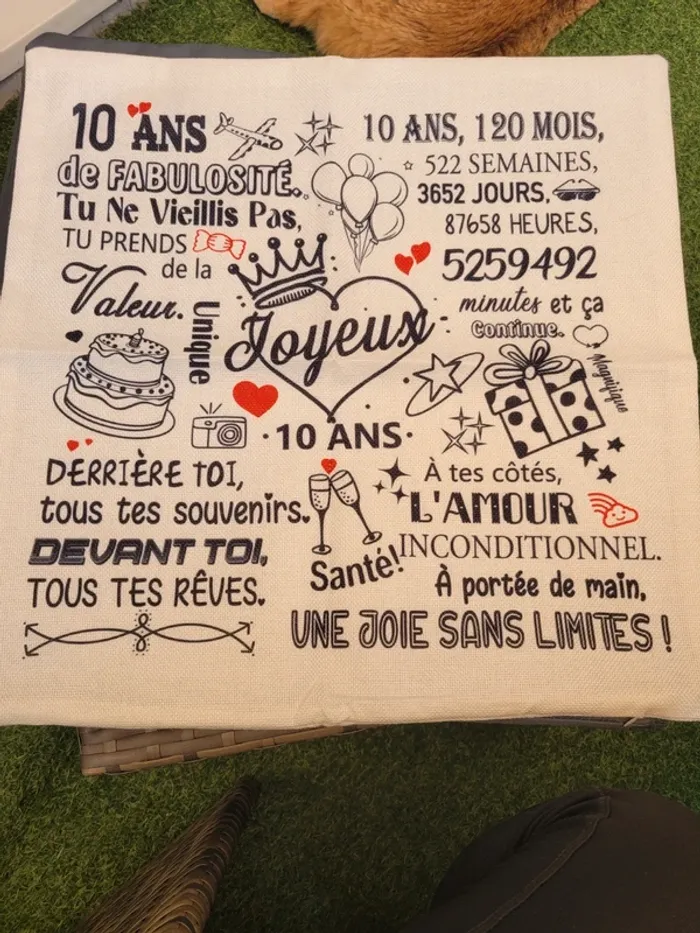 10 ANS
de FABULOSITÉ.
Tu Ne Vieillis Pas,
TU PRENDS
de la
Valeur.
Unique
10 ANS, 120 MOIS,
522 SEMAINES,
3652 JOURS,
87658 HEURES,
5259492
minutes et ça
Continue.
Magnifique
Joyeux
10 ANS
DERRIÈRE TOI,
tous tes souvenirs.
DEVANT TOI,
TOUS TES RÊVES.
Santé!
À tes côtés,
L'AMOUR
INCONDITIONNEL.
À portée de main,
UNE JOIE SANS LIMITES !